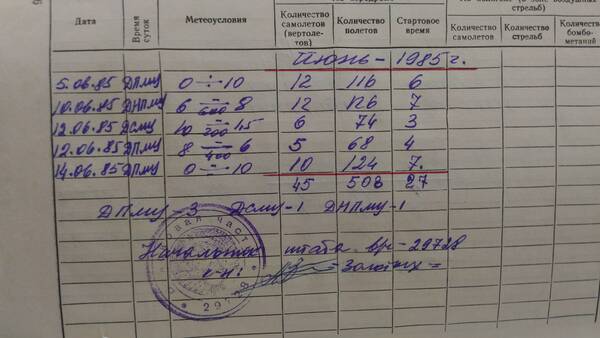 Дата Время суток Метеоусловия Количество самолетов (вертолетов) Количество полетов Стартовое время Количество самолетов Количество стрельб Количество бомбометаний
Июнь – 1985 г.
5.06.85 ДПМУ 0 ÷ 10 12 116 6
10.06.85 ДНПМУ 6 ÷ 8 600 12 126 7
12.06.85 ДСМУ 10 ÷ 15 200 6 74 3
12.06.85 ДПМУ 8 ÷ 6 400 5 68 4
14.06.85 ДПМУ 0 ÷ 10 10 124 7.
45 508 27
ДПМУ – 3 ДСМУ – 1 ДНПМУ – 1
Начальник штаба в/ч – 29728
к-н: Золотых =
29728